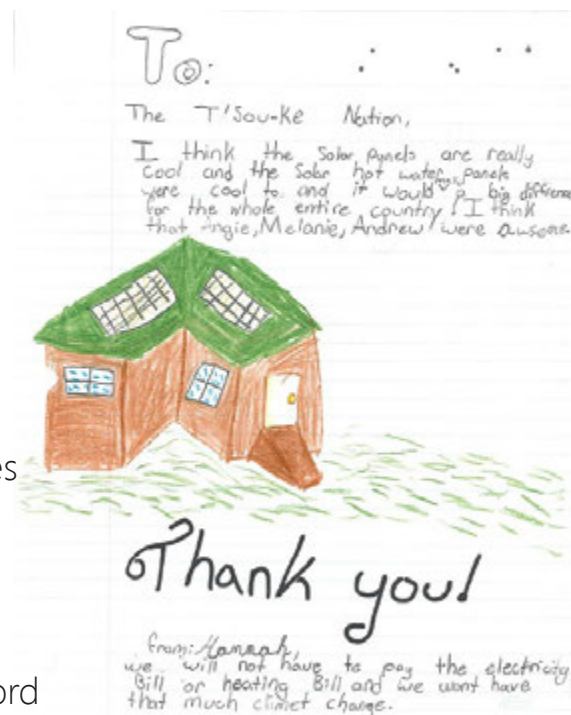 To:
The T'Sou-ke Nation,
I think the Solar Panels are really
cool and the Solar hot water panels
were cool to and it would a big difference
for the whole entire country! I think
that Angie, Melanie, Andrew were awsome.
es
Thank you!
From: Hannah,
we will not have to pay the electricity
Bill or heating Bill and we wont have
that much climet change.
ord